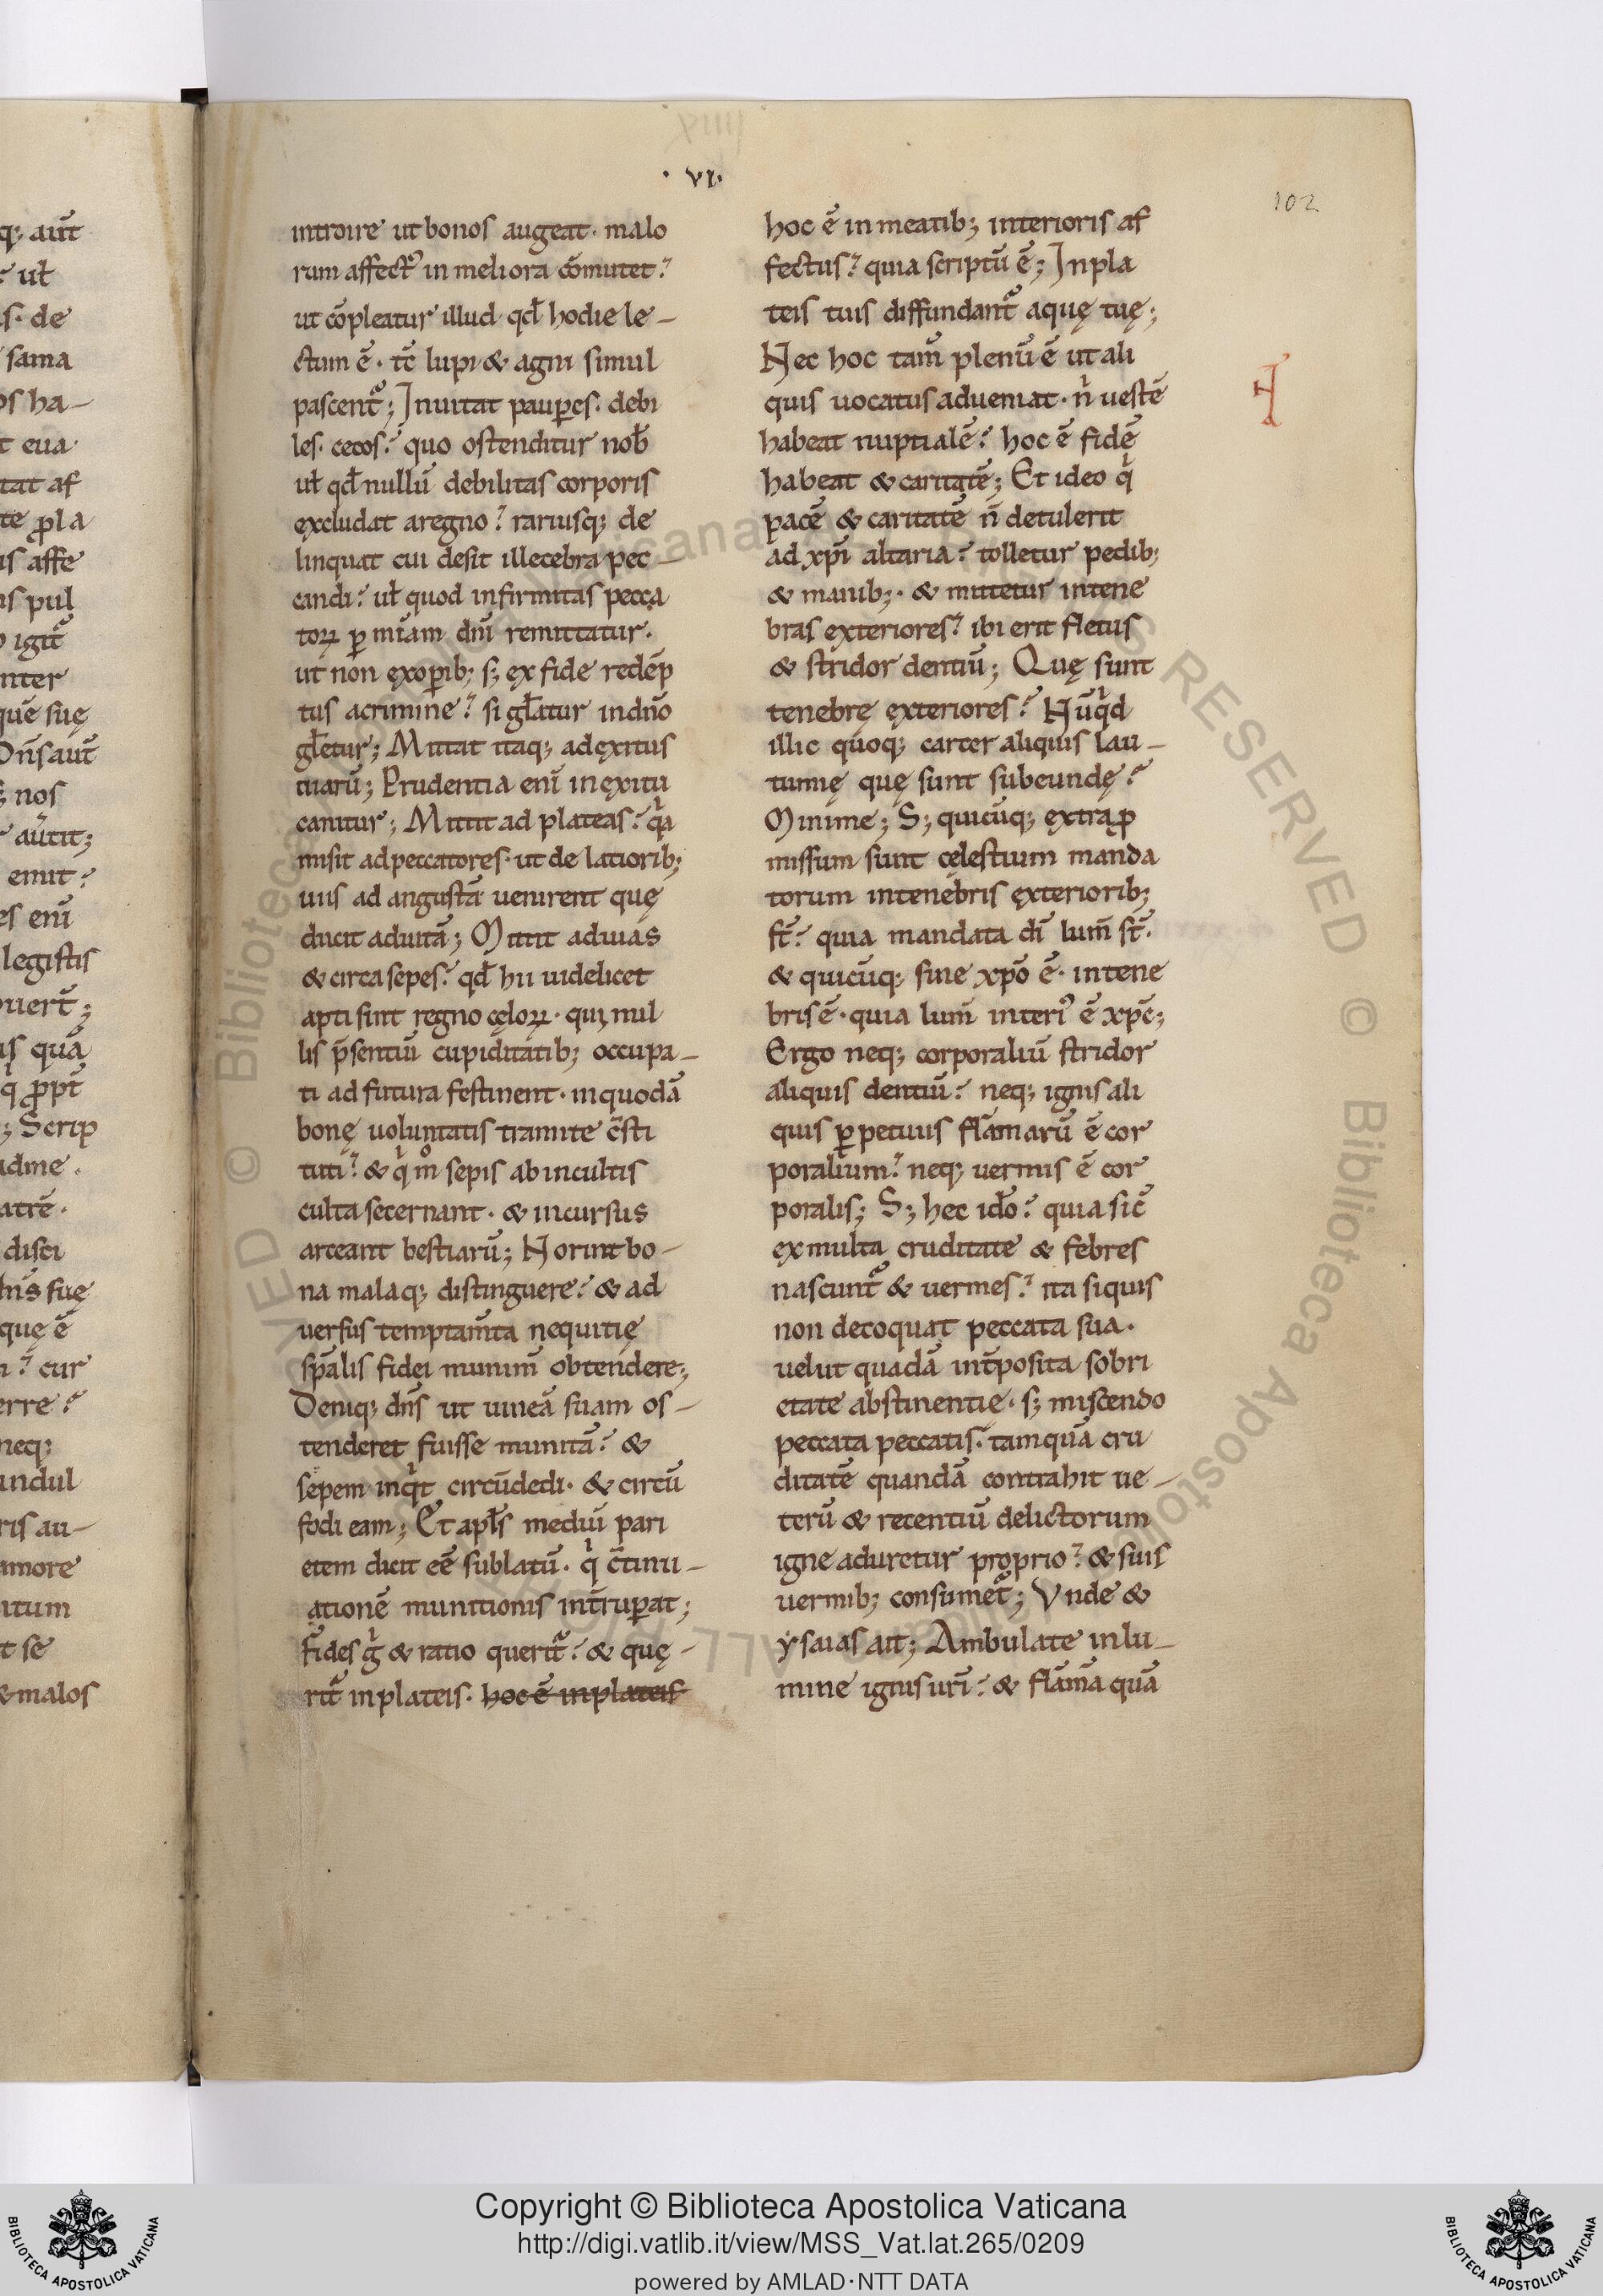 q; aut̄
ul̵
s. de
sama
os ha-
t eua
tat af
te ꝓla
is affe
is pul
o igit᷑
nter
quē suę
Dn̄s aut̄
; nos
autit;
emit?
es enī
legistis
uert̄;
is quā
q ꝓpt̄
; Scrip
adme.
atrē.
disci
suę
quę ē
? cur
erre?
neq;
undul
ris au-
amore
itum
t se
& malos
. VI.
102
introire ut bonos augeat. malo
rum affectꝰ in meliora cōmutet?
ut cōpleatur illud qd̵ hodie le-
ctum ē. tc̄ lupi & agni simul
pascent᷑; Inuitat pauꝑes. debi
les. cecos? quo ostenditur nob̵
ul̵ qd̵ nullū debilitas corporis
excludat aregno? rariusq; de
linquat cui desit illecebra pec-
candi? ul̵ quod infirmitas pecca
toꝝ ꝑ mīam dnī remittatur.
ut non exoꝑib; s; ex fide redēp
tus acrimine? si gl̵atur indn̄o
gl̵etur; Mittat itaq; adęxitus
uiarū; Prudentia enī inęxitu
canitur; Mittit ad plateas? qͥa
misit ad peccatores. ut de latiorib;
uiis ad angustā uenirent quę
ducit aduitā; Mittit aduias
& circa sepes? qd̵ hii uidelicet
apti sint regno cęloꝝ. qui nul
lis p̄sentiū cupiditatib; occupa-
ti ad futura festinent. inquodā
bonę uoluntatis tramite c̄sti
tuti? & qͥ mͦ sepis ab incultis
culta secernant. & incursus
arceant bestiarū; Norint bo-
na malaq; distinguere? & ad
uersus temptam̄ta nequitię
sp̄alis fidei munim̄ obtendere;
Deniq; dn̄s ut uineā suam os-
tenderet fuisse munitā? &
sepem inqͥt circūdedi. & circū
fodi eam; Et apl̵s mediū pari
etem dicit eē sublatū. qͥ c̄tinu-
ationē munitionis int̄ruꝑat;
Fides gͥ & ratio querit᷑? & quę-
rit᷑ inplateis. hoc ē inplateis
hoc ē in meatib; interioris af
fectus? quia scriptū ē; Inpla
teis tuis diffundant᷑ aquę tuę;
Nec hoc tam̄ plenū ē ut ali
quis uocatus adueniat. nͥ uestē
habeat nuptialē? hoc ē fidē
habeat & caritatē; Et ideo qͥ
pacē & caritatē n̄ detulerit
ad xp̄i altaria? tolletur pedib;
& manib;. & mittetur intene
bras exteriores? ibi erit fletus
& stridor dentiū; Quę sunt
tenebrę ęxteriores? Nūqͥd
illic quoq; carcer aliquis lau-
tumię quę sunt subeundę?
Minime; S; quicūq; ęxtra ꝓ
missum sunt cęlestium manda
torum intenebris ęxteriorib;
st̄? quia mandata dī lum̄ st̄.
& quicūq; sine xp̄o ē. intene
bris ē. quia lum̄ interiꝰ ē xp̄c;
Ergo neq; corporaliū stridor
aliquis dentiū? neq; ignis ali
quis ꝑpetuus flāmarū ē cor
poralium? neq; uermis ē cor
poralis; S; hec id̵o? quia sic̄
ęxmulta cruditate & febres
nascunt᷑ & uermes? ita siquis
non decoquat peccata sua.
uelut quadā int̄posita sobri
etate abstinentię. s; miscendo
peccata peccatis. tamquā cru
ditatē quandā contrahit ue-
terū & recentiū delictorum
igne aduretur proprio? & suis
uermib; consumet᷑; Vnde &
ysaias ait; Ambulate inlu-
mine ignis urī? & flāmā quā
Copyright © Biblioteca Apostolica Vaticana
http://digi.vatlib.it/view/MSS_Vat.lat.265/0209
powered by AMLAD·NTT DATA
BIBLIOTECA APOSTOLICA VATICANA
BIBLIOTECA APOSTOLICA VATICANA